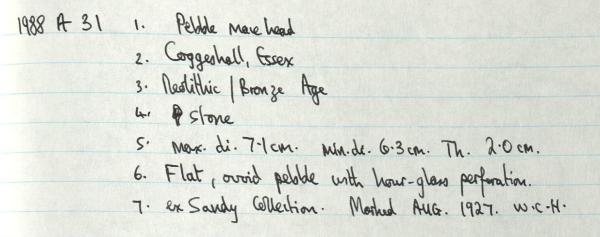 1988 A 31 1. Pebble mace head
2. Coggeshall, Essex
3. Neolithic / Bronze Age
4. stone
5. max. di. 7.1cm. min. di. 6.3cm. Th. 2.0cm.
6. Flat, ovoid pebble with hour-glass perforation.
7. ex Sandy Collection. Marked AUG. 1927. W.C.H.